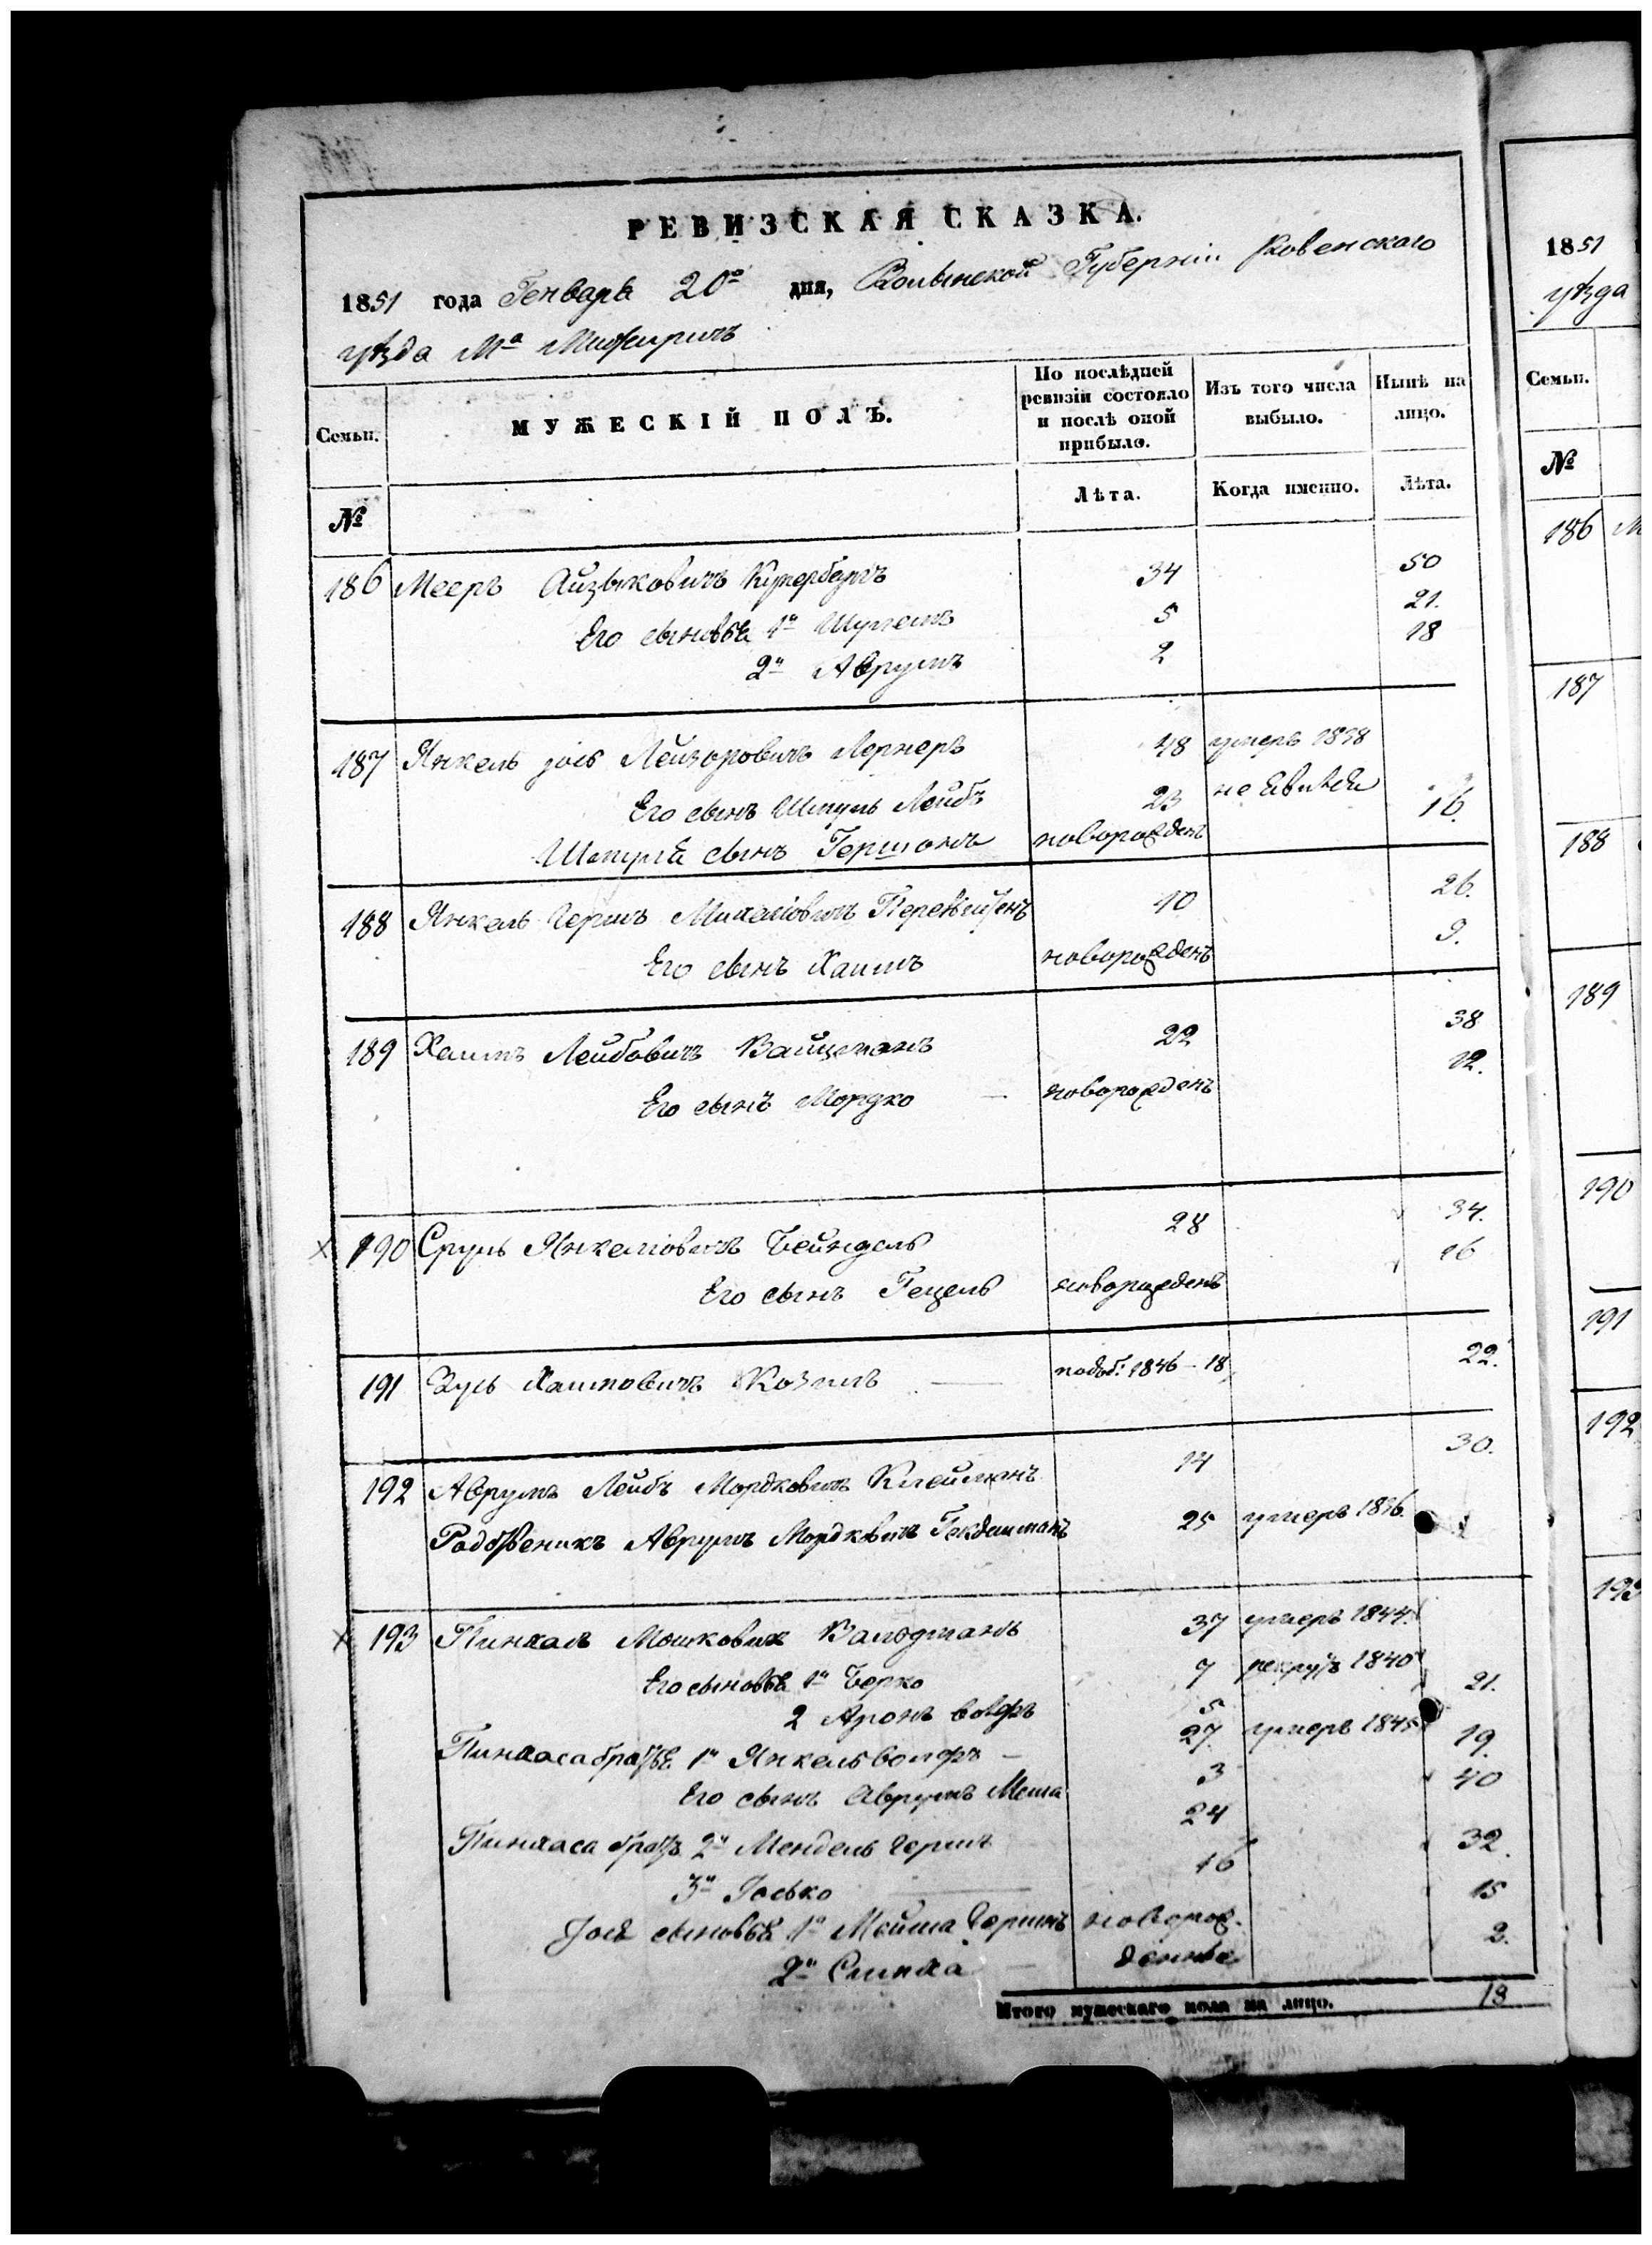 РЕВИЗСКАЯ СКАЗКА.
1851 года Генваря 20го дня, Волынской Губерніи Ровенского
уѣзда Ма Межиричъ
Семьи. МУЖЕСКІЙ ПОЛЪ. По послѣдней ревизіи состояло и послѣ оной прибыло. Изъ того числа выбыло. Нынѣ на лицо.
№ Лѣта. Когда именно. Лѣта.
186 Мееръ Айзыковичъ Купербергъ 34 50
Его сыновья 1й Шулемъ 5 21.
2й Аврумъ 2 18
187 Янкель Лейзоровичъ Лернеръ 48 умеръ 1838
Его сынъ Шмуль Лейбъ 23 не явился
Шмуля сынъ Гершонъ новорожденъ 16.
188 Янкель Гершъ Михелiовичъ 10 26.
Его сынъ Хаимъ новорожденъ 9.
189 Хаимъ Лейбовичъ Вайцманъ 22 38
Его сынъ Мордко — новорожденъ 12.
190 Сруль Янкелiовичъ Бейндель 28 34.
Его сынъ Гецель новорожденъ 16
191 Зусь Хаимовичъ Козакъ — 1846 - 18 22.
192 Аврумъ Лейбъ Мордковичъ Клейманъ 14 30.
Аврумъ Мордковичъ 25 умеръ 1836.
193 Пинхасъ Мошковичъ Валдманъ 37 умеръ 1844.
Его сыновья 1й Берко 7 рекрутъ 1840
2 Аронъ Волфъ 5 21.
Пинхаса братья 1й Янкель Волфъ — 27 умеръ 1845
Его сынъ Аврумъ Меша 3 19.
Пинхаса братъ 2й Мендель Гершъ 24 40
3й Іосько 16 32.
Іося сыновья 1й Мойша Гершъ новорож- 15
2й Симха — денные 2.
Итого мужескаго пола на лицо. 18
1851
уѣзда
Семьи.
№
186 М
187
188
189
190
191
192
193